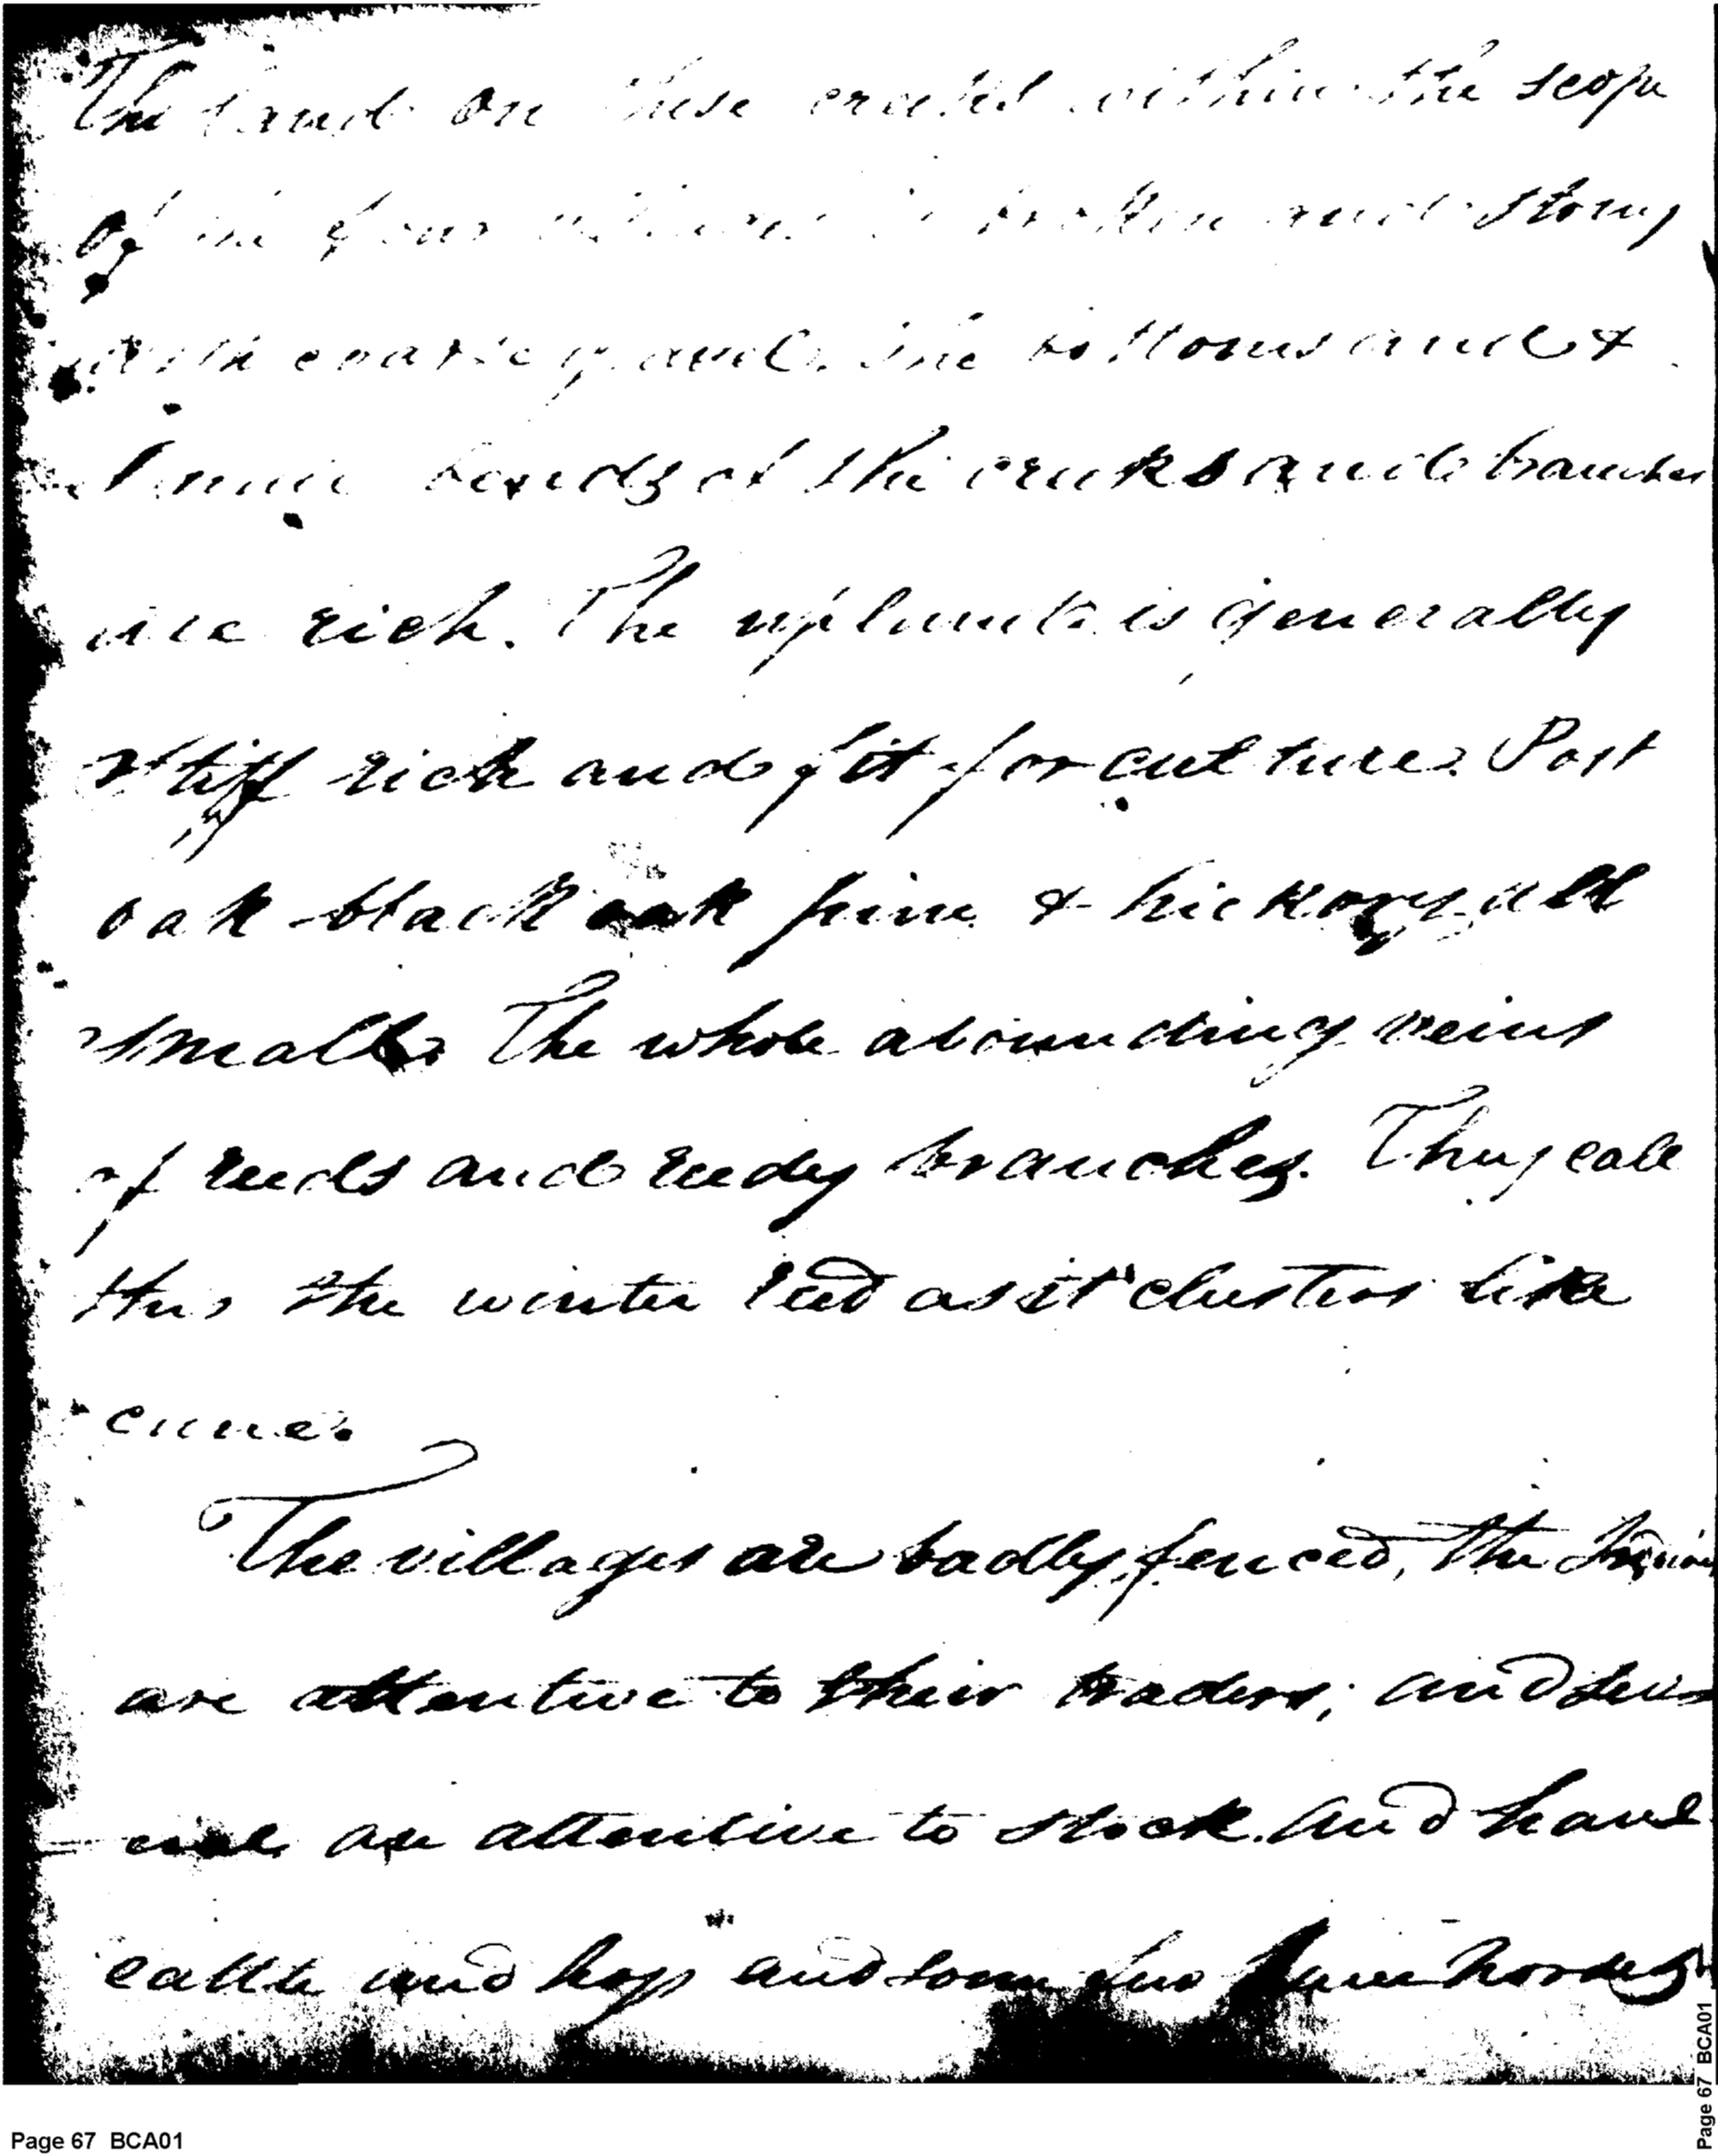 The land on these creeks within the scope
of the four villages is broken and stony
with coarse gravel. The bottoms and
small bends of the creeks and branches
are rich. The upland is generally
stiff rich and fit for culture. Post
oak black oak pine & hickory all
small. The whole abounding veins
of reeds and reedy branches. They call
this the winter reed as it clusters like
cane.
The villages are badly fenced, the Indians
are attentive to their traders, and several
are attentive to stock. And have
cattle and hogs and some few have horses
Page 67 BCA01
Page 67 BCA01